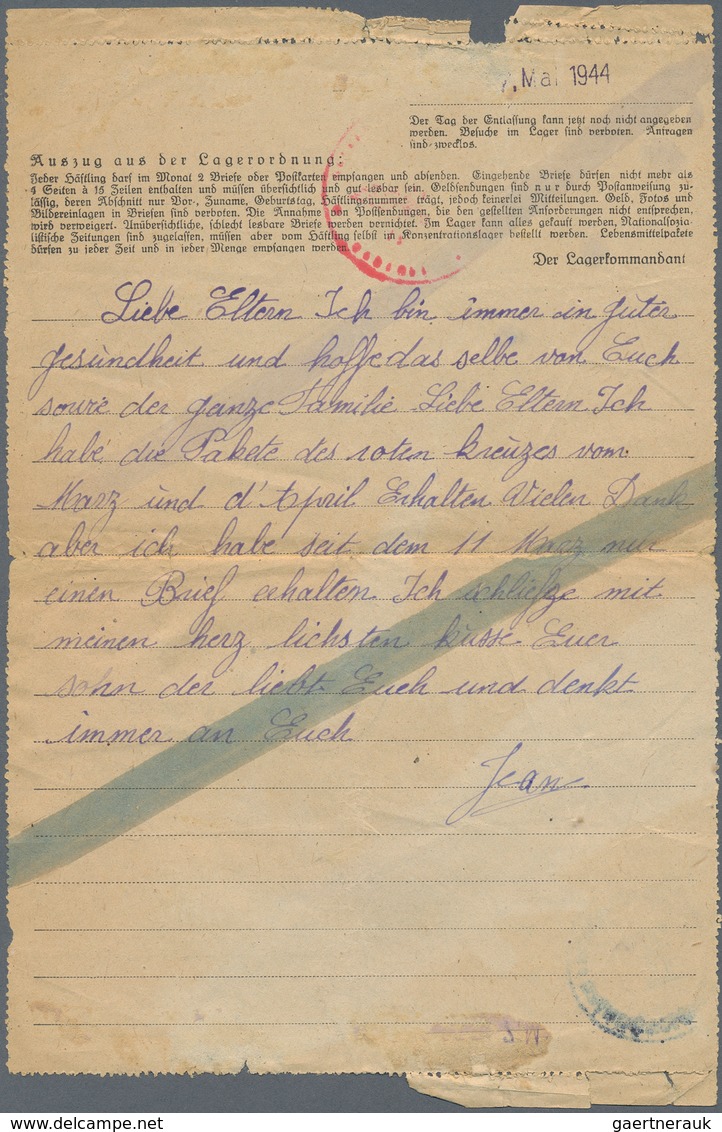 7. Mai 1944
Der Tag der Entlassung kann jetzt noch nicht angegeben
werden. Besuche im Lager sind verboten. Anfragen
sind zwecklos.
Auszug aus der Lagerordnung:
Jeder Häftling darf im Monat 2 Briefe oder Postkarten empfangen und absenden. Eingehende Briefe dürfen nicht mehr als
4 Seiten à 15 Zeilen enthalten und müssen übersichtlich und gut lesbar sein. Geldsendungen sind nur durch Postanweisung zu-
lässig, deren Abschnitt nur Vor-, Zuname, Geburtstag, Häftlingsnummer trägt, jedoch keinerlei Mitteilungen. Geld, Fotos und
Bildereinlagen in Briefen sind verboten. Die Annahme von Postsendungen, die den gestellten Anforderungen nicht entsprechen,
wird verweigert. Unübersichtliche, schlecht lesbare Briefe werden vernichtet. Im Lager kann alles gekauft werden. Nationalsozia-
listische Zeitungen sind zugelassen, müssen aber vom Häftling selbst im Konzentrationslager bestellt werden. Lebensmittelpakete
dürfen zu jeder Zeit und in jeder Menge empfangen werden.
Der Lagerkommandant
Liebe Eltern Ich bin immer in guter
gesundheit und hoffe das selbe von Euch
sowie der ganze Familie Liebe Eltern Ich
habe die Pakete des roten kreuzes vom
Marz und d'April Erhalten Vielen Dank
aber ich habe seit dem 11 Marz nur
einen Brief erhalten Ich schliefze mit
meinen herz lichsten küsse Euer
sohn der liebt Euch und denkt
immer an Euch
Jean
gaertnerauk
delcampe.net